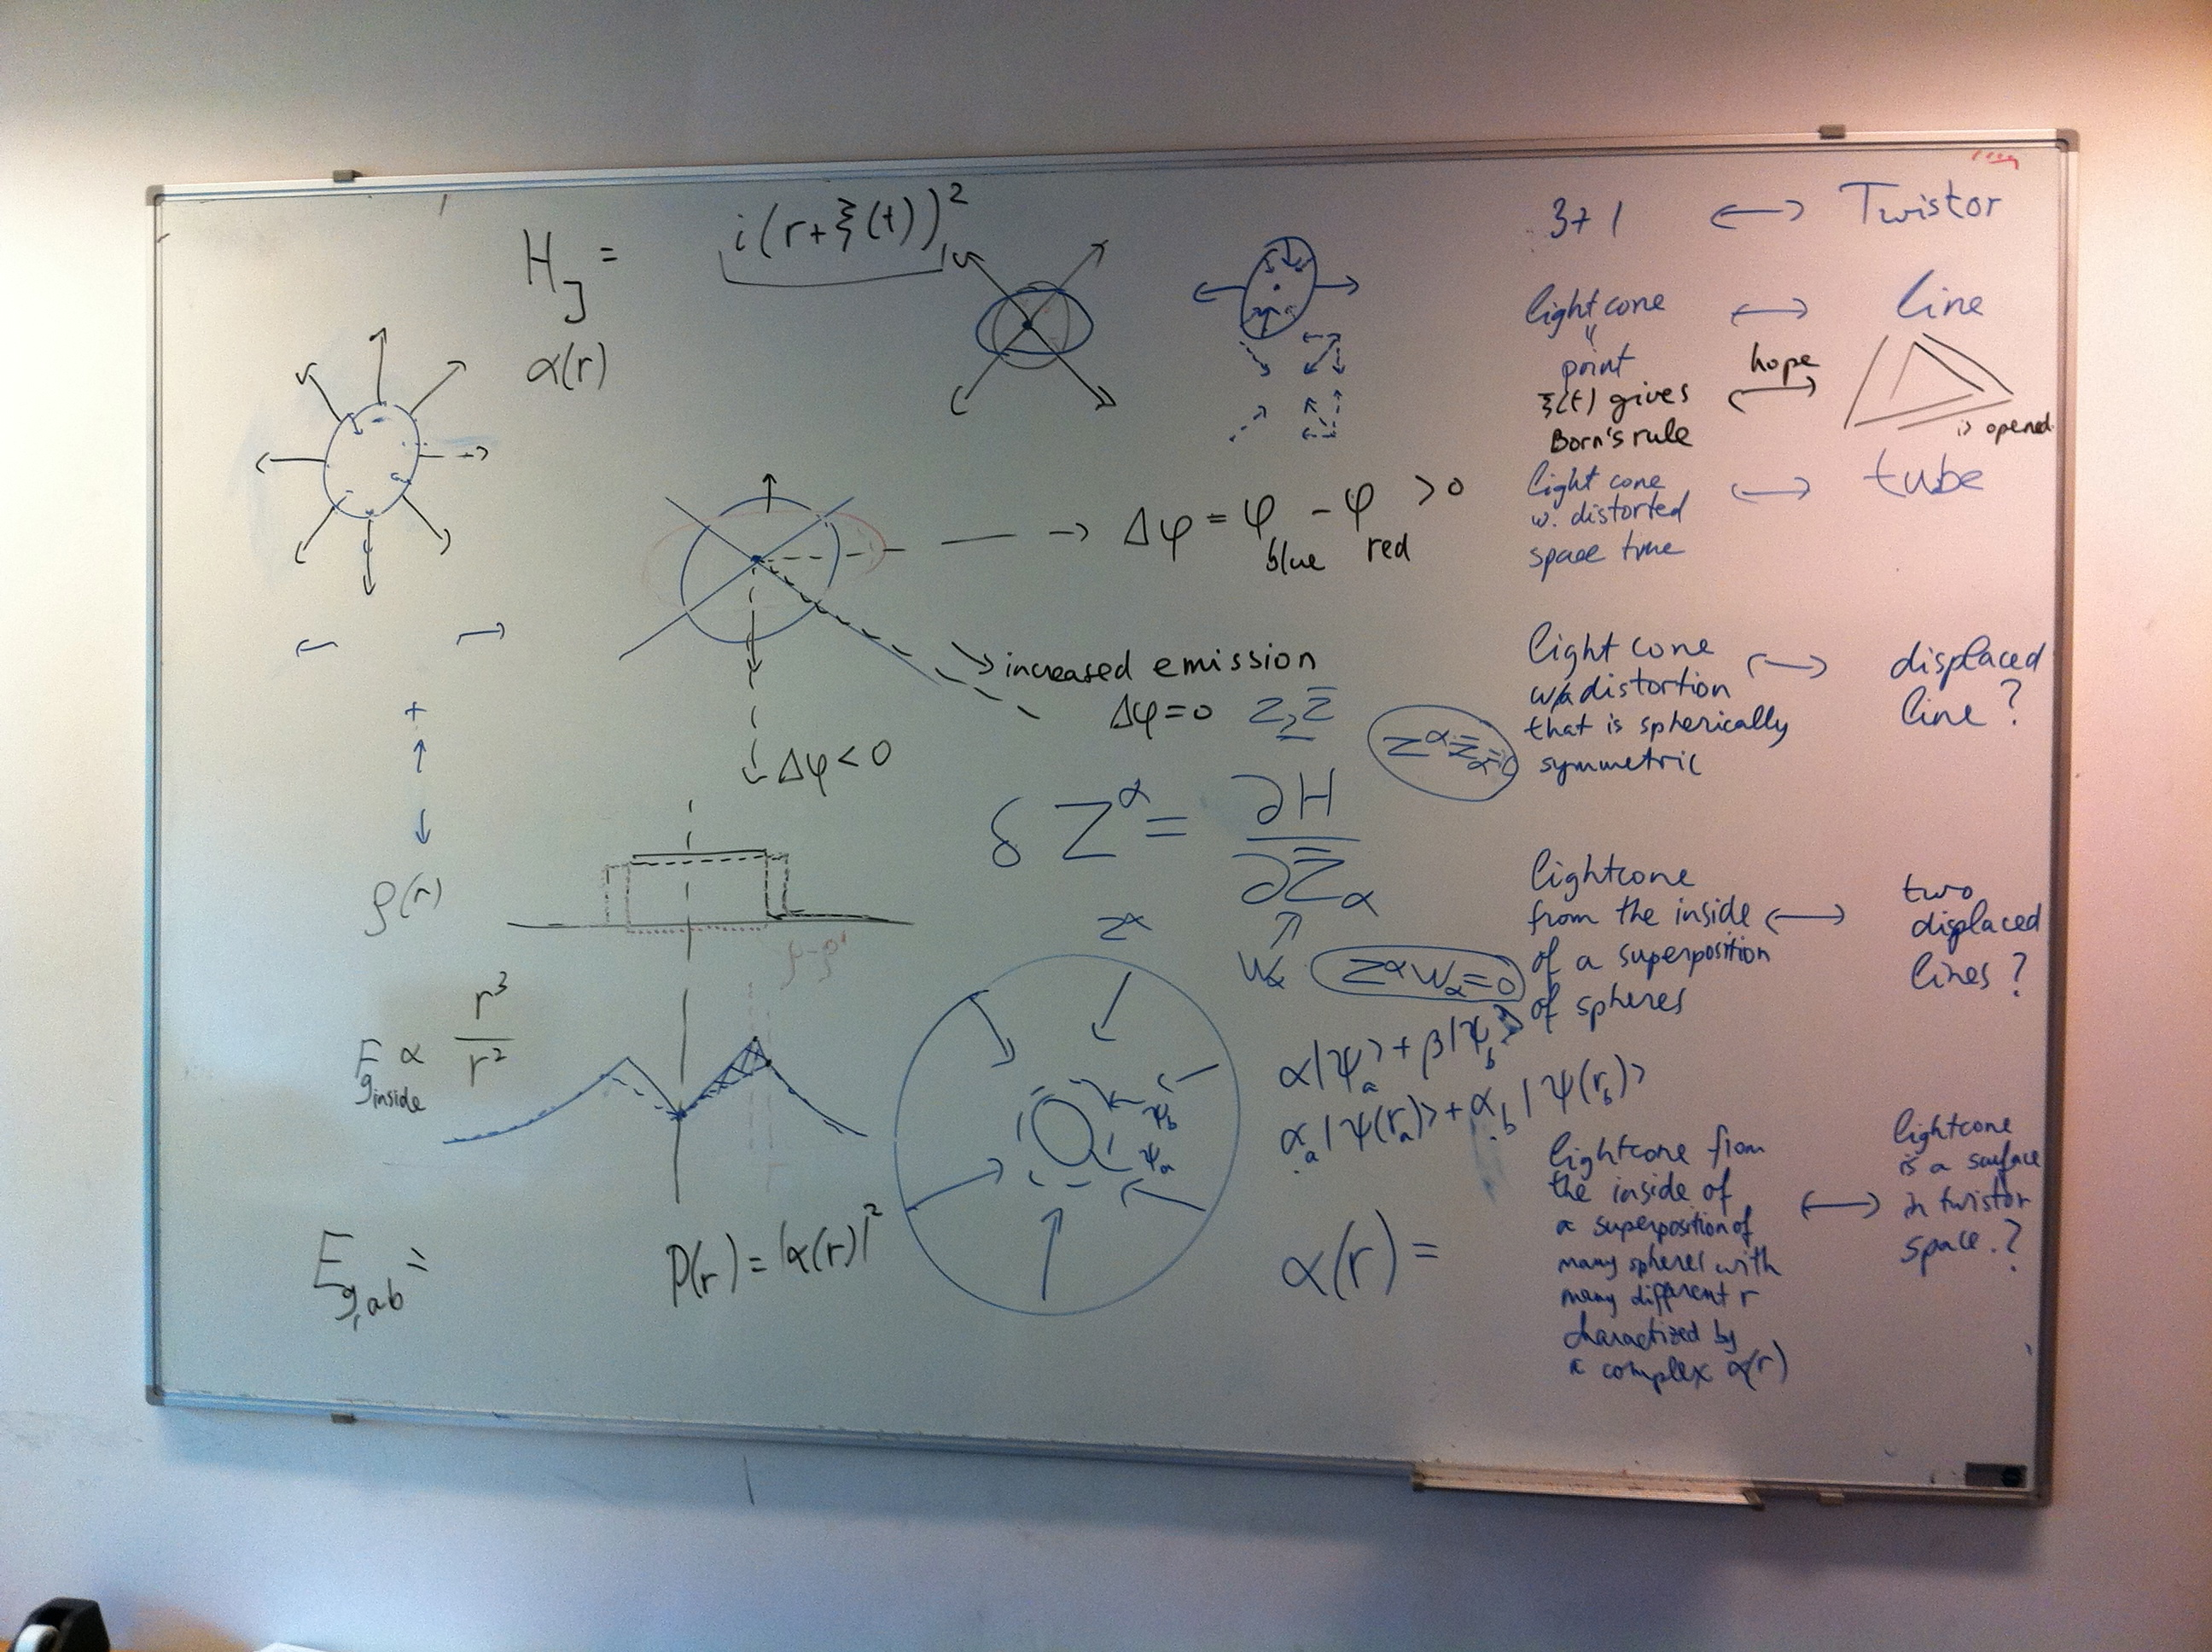 H_J = i(r+ξ(t))²
α(r)
Δφ = φ_blue - φ_red >0
increased emission
Δφ=0 Z, Z̄
Δφ<0
Z^α Z̄_α=0
δ Z^α = ∂H / ∂Z̄_α
W_α
Z^α W_α = 0
Z^α
ρ(r)
ρ-ρ'
E_g inside ∝ r³ / r²
E_g,ab =
P(r) = |α(r)|²
ψ_b
ψ_a
α|ψ_a> + β|ψ_b>
α_a|ψ(r_a)> + α_b|ψ(r_b)>
α(r) =
3+1 ↔ Twistor
light cone ↔ line
point
ξ(t) gives
Born's rule
hope
is opened
light cone
w. distorted
space time
↔ tube
light cone
w/a distortion
that is spherically
symmetric
↔ displaced
line?
lightcone
from the inside
of a superposition
of spheres
↔ two
displaced
lines?
lightcone from
the inside of
a superposition of
many spheres with
many different r
charactized by
a complex α(r)
↔ lightcone
is a surface
in twistor
space.?